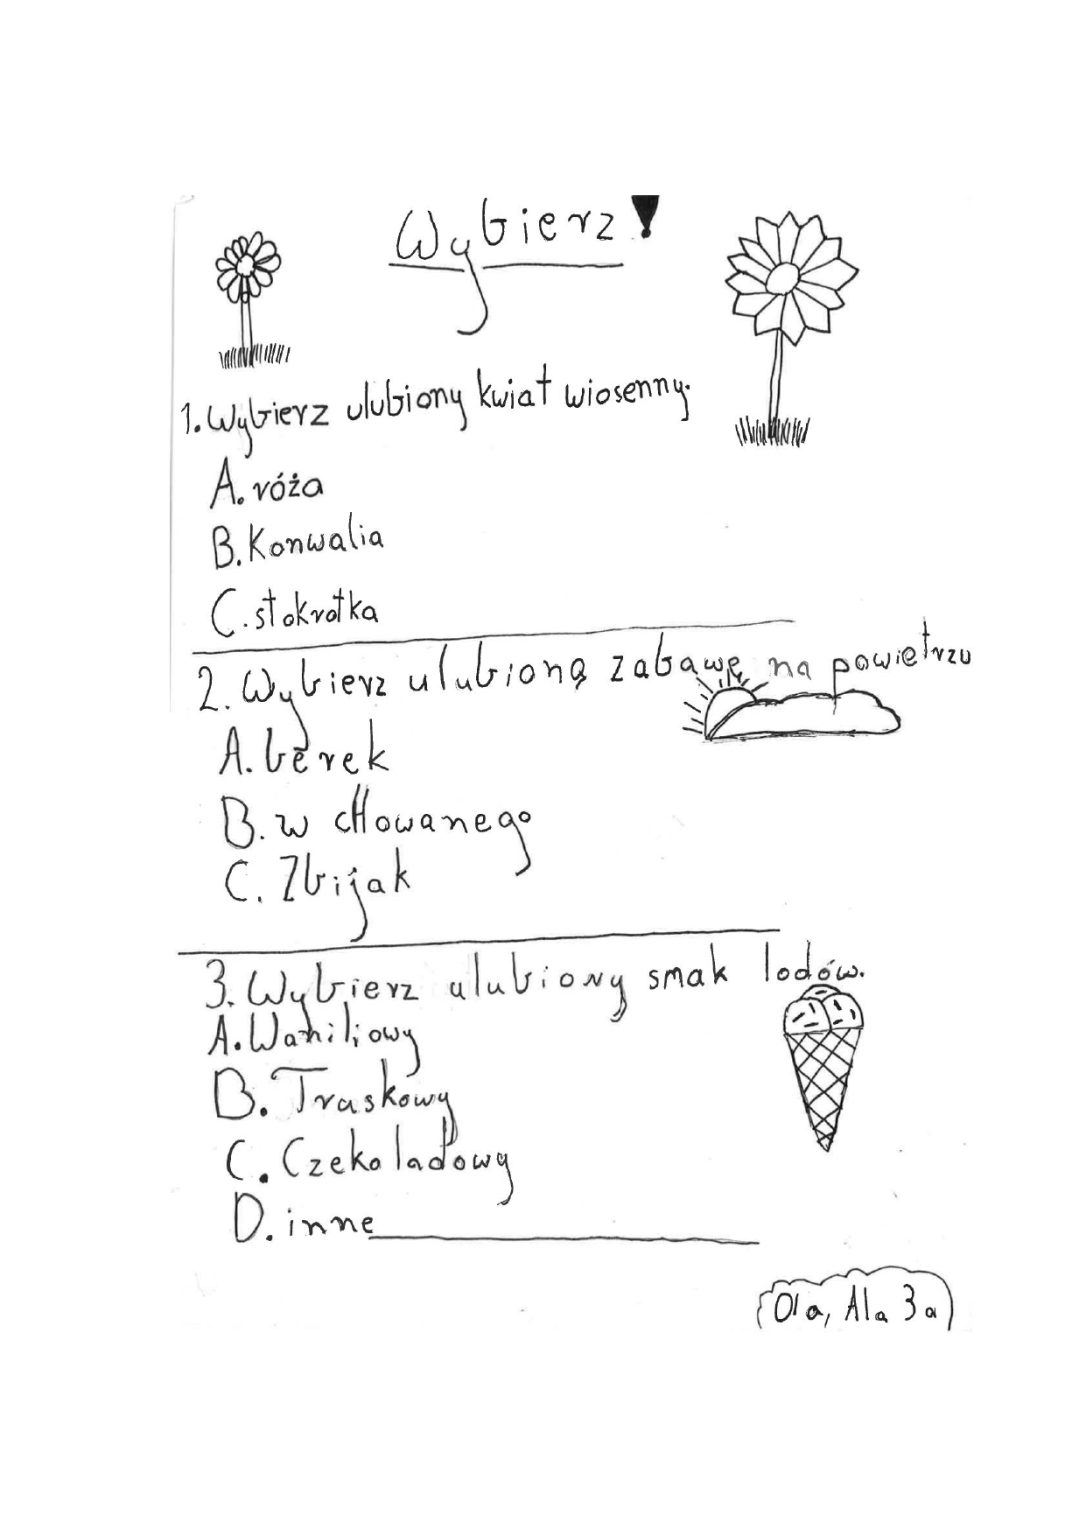 Wybierz!
1. Wybierz ulubiony kwiat wiosenny.
A. róża
B. Konwalia
C. stokrotka
2. Wybierz ulubioną zabawę na powietrzu
A. berek
B. w chowanego
C. Zbijak
3. Wybierz ulubiony smak lodów.
A. Waniliowy
B. Truskowy
C. Czekoladowy
D. inne
Ola, Ala 3a